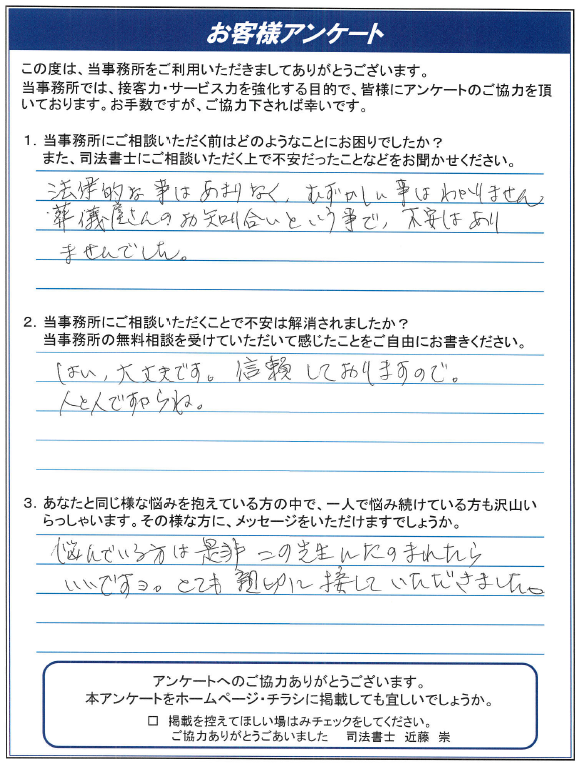 お客様アンケート
この度は、当事務所をご利用いただきましてありがとうございます。
当事務所では、接客力・サービス力を強化する目的で、皆様にアンケートのご協力を頂
いております。お手数ですが、ご協力下されば幸いです。
1．当事務所にご相談いただく前はどのようなことにお困りでしたか？
また、司法書士にご相談いただく上で不安だったことなどをお聞かせください。
法律的な事はあまりなく、むずかしい事はわかりません
葬儀屋さんのお知り合いという事で、不安はあり
ませんでした。
2．当事務所にご相談いただくことで不安は解消されましたか？
当事務所の無料相談を受けていただいて感じたことをご自由にお書きください。
はい、大丈夫です。信頼しておりますので。
人と人ですからね。
3．あなたと同じ様な悩みを抱えている方の中で、一人で悩み続けている方も沢山い
らっしゃいます。その様な方に、メッセージをいただけますでしょうか。
悩んでいる方は是非この先生にたのまれたら
いいですヨ。とても親切に接していただきました。
アンケートへのご協力ありがとうございます。
本アンケートをホームページ・チラシに掲載しても宜しいでしょうか。
□ 掲載を控えてほしい場はみチェックをしてください。
ご協力ありがとうごあいました 司法書士 近藤 崇